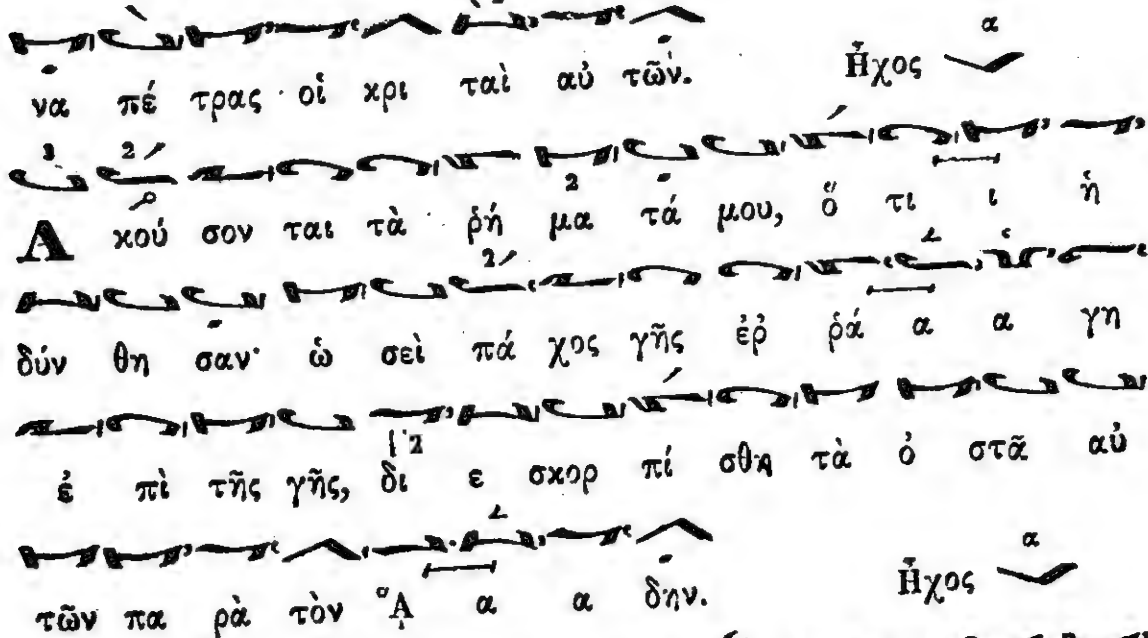 να πέ τρας οἱ κρι ταὶ αὐ τῶν. Ἦχος α
Α κού σον ται τὰ ῥή μα τά μου, ὅ τι ι ἡ
δύν θη σαν· ὡ σεὶ πά χος γῆς ἐῤ ῥά α α γη
ἐ πὶ τῆς γῆς, δι ε σκορ πί σθη τὰ ὀ στᾶ αὐ
τῶν πα ρὰ τὸν ᾍ α α δην. Ἦχος α